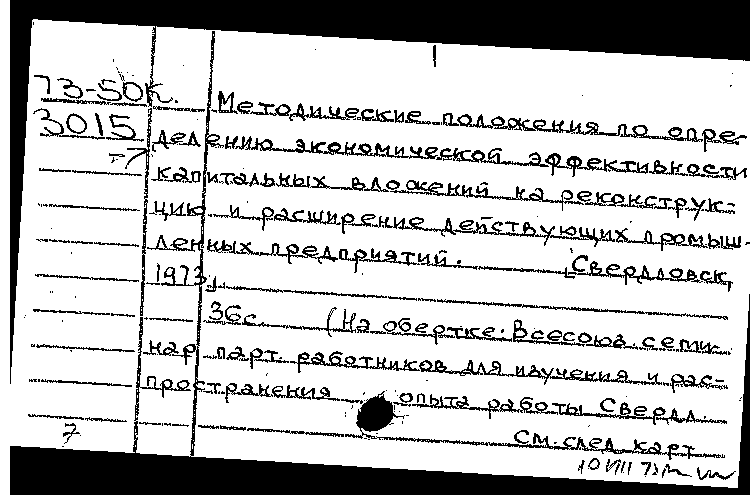 73-50к. Методические положения по опре-
3015 делению экономической эффективности
-7 капитальных вложений на реконструк-
цию и расширение действующих промыш-
ленных предприятий. [Свердловск,
1973].
36с. (На обертке: Всесоюз. семи-
нар парт. работников для изучения и рас-
пространения опыта работы Свердл.
См. след. карт
7
10 VIII 73